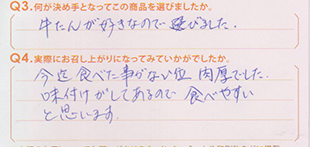 Q3.何が決め手となってこの商品を選びましたか。
牛たんが好きなので選びました。
Q4.実際にお召し上がりになってみていかがでしたか。
今迄食べた事がない位肉厚でした。
味付けがしてあるので食べやすい
と思います。